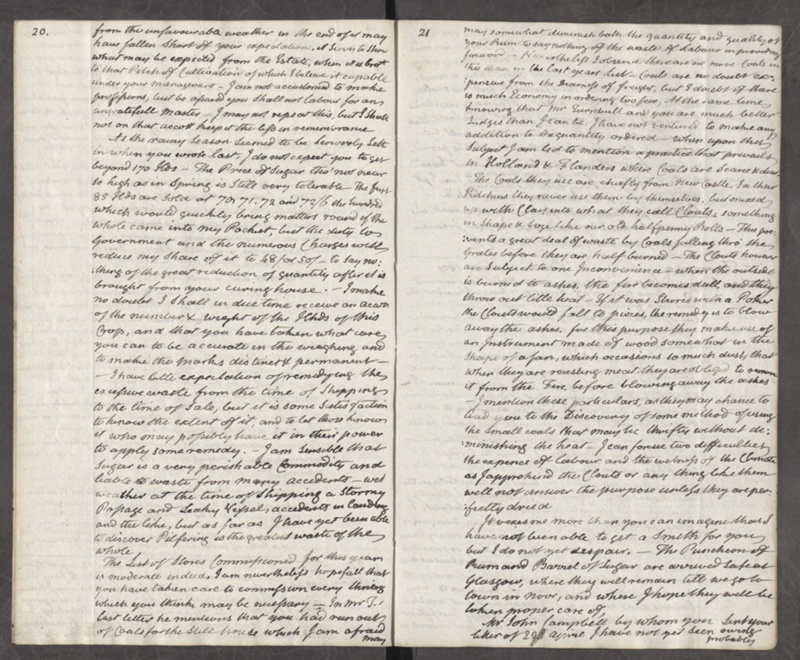 20.
from the unfavourable weather in the end of it may
have fallen Short of your expectations, it Serves to Shew
what may be expected from the Estate, when it is brot
to that Pitch of Cultivation of which I believe it capable
under your management — I am not accustomed to make
professions, but be assured you Shall not labour for an
ungratefull Master — I may not repeat this, but I Shall
not on that accott keep it the less in remembrance
As the rainy Season Seemed to be Seriously Sett
in when you wrote last, I do not expect you to get
beyond 170 Hds — The Price of Sugar tho' not near
So high as in Spring is Still very tolerable The first
85 Hds are Sold at 70, 71, 72 and 72/6 the hundred
which would quickly bring matters round if the
whole came into my Pocket, but the duty to
Government and the numerous Charges will
reduce my Share of it to 48/ or 50/ — to Say no:
:thing of the great reduction of quantity after it is
brought from your curing house. — I make
no doubt I Shall in due time receive an accott
of the number & weight of the Hds of this
Crop, and that you have taken what care
you can to be accurate in the weighing and
to make the Marks distinct & permanent —
— I have little expectation of remedying the
excessive waste from the time of Shipping
to the time of Sale, but it is some Satisfaction
to know the extent of it, and to let those know
it who may possibly have it in their power
to apply some remedy. — I am Sensible that
Sugar is a very perishable Commodity and
liable to waste from many accidents — wet
weather at the time of Shipping a Stormy
Passage and Leaky Vessel, accidents in Landing
and the like, but as far as I have yet been able
to discover Pilfering is the greatest waste of the
whole.
The List of Stores Commissioned for this year
is moderate indeed, I am nevertheless hopefull that
you have taken care to commission every thing
which you think may be necessary — In Mr T.s
last letter he mentions that you had run out
of Coals for the Still house which I am afraid
may
21
may somewhat diminish both the quantity and quality of
your Rum to say nothing of the waste of Labour in providing
firewood — Nevertheless I observe there are no more Coals in
this than in the last years List. Coals are no doubt ex:
:pensive from the dearness of freight, but I doubt if there
is much Economy in ordering too few, At the same time
knowing that Mr Turnbull and you are much better
Judges than I can be, I have not ventured to make any
addition to the quantity ordered — When upon this
Subject I am led to mention a practice that prevails
in Holland & Flanders where Coals are Scarce & dear
— The Coals they use are chiefly from New Castle, In their
Kitchens they never use them by themselves, but mixed
up with Clay into what they call Clouts, something
in Shape & Size like our old halfpenny Rolls — This pre:
:vents a great deal of waste by Coals falling thro' the
Grates before they are half burned — The Clouts however
are Subject to one Inconvenience — when the outside
is burned to ashes the fire becomes dull, and they
throw out little heat — If it was Stirred with a Poker
the Clouts would fall to pieces, the remedy is to blow
away the ashes, for this purpose they make use of
an Instrument made of wood somewhat in the
Shape of a fan, which occasions so much dust, that
when they are roasting meat they are obliged to remove
it from the Fire, before blowing away the ashes
— I mention these particulars, as they may chance to
lead you to the Discovery of some method of using
the Small coals that may be thrifty without di:
:minishing the heat — I can forsee two difficulties,
the expence of labour and the wetness of the Climate
as I apprehend the Clouts or any thing like them
will not answer the purpose unless they are per:
:fectly dried
It vexes me more than you can imagine that I
have not been able to get a Smith for you
but I do not yet despair. — The Puncheon of
Rum and Barrel of Sugar are arrived Safe at
Glasgow, where they will remain till we go to
town in Novr, and where I hope they will be
taken proper care of.
Mr John Campbell by whom you Sent your
letter of 29 April I have not yet seen owing
probably